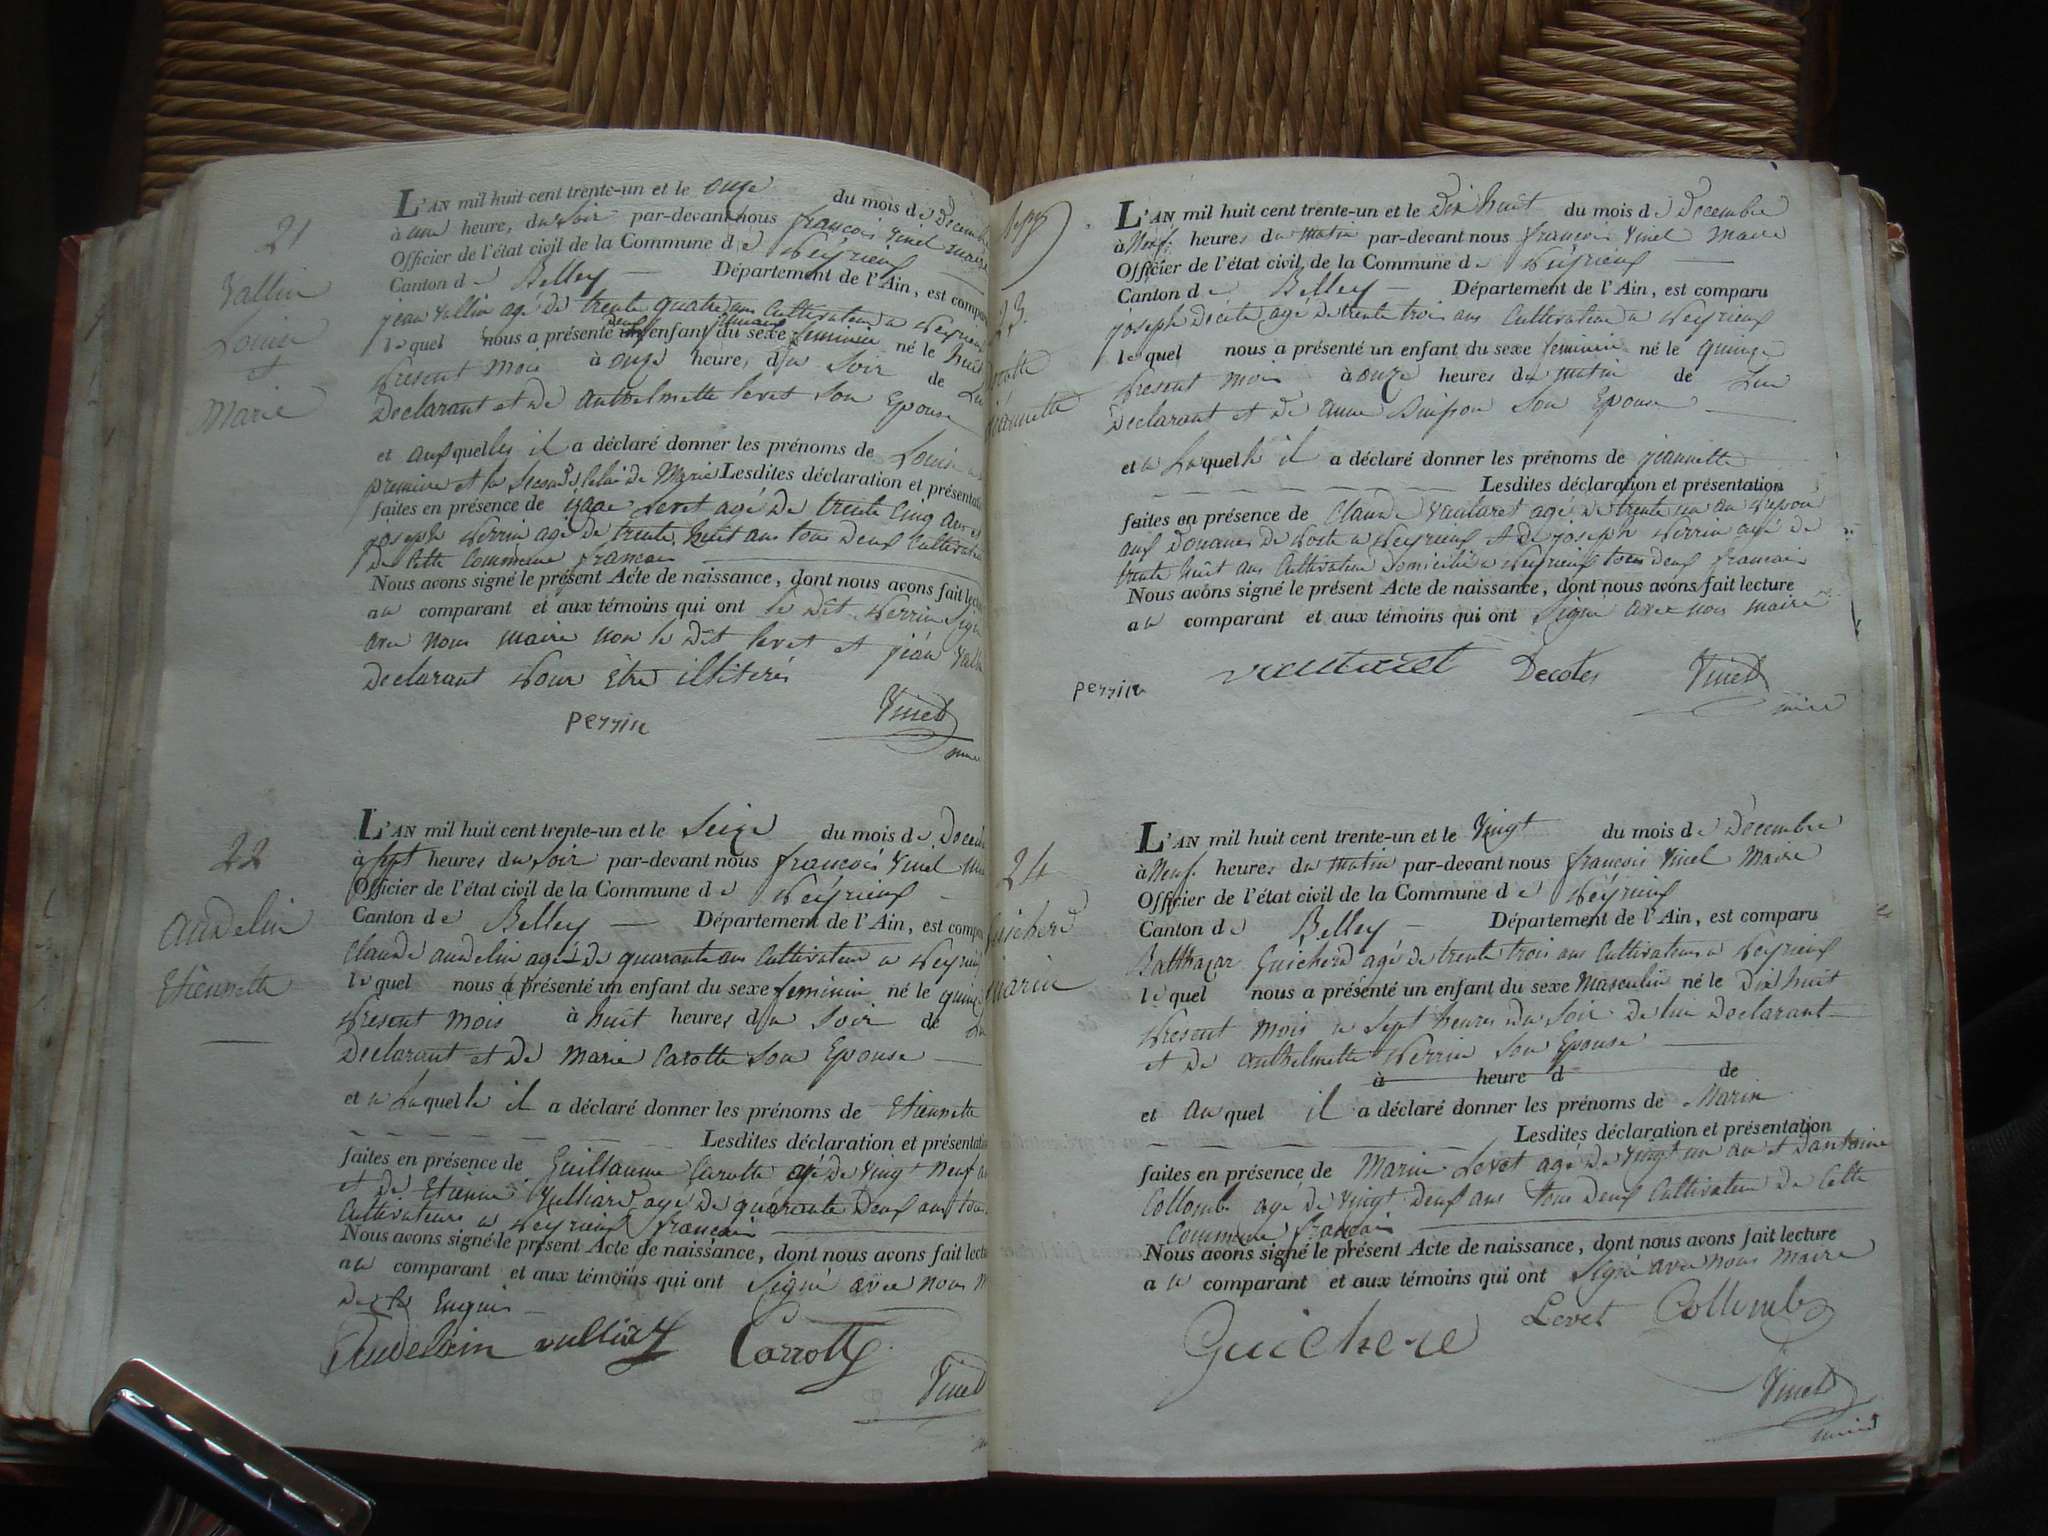 21
Vallin
Louise
et
Marie
L'AN mil huit cent trente-un et le onze du mois de Decembre
à une heure, du soir par-devant nous françois Vinel maire
Officier de l'état civil de la Commune de Peyrieux
Canton de Belley — Département de l'Ain, est comparu
jean Vallin agé de trente quatre ans Cultivateur a Peyrieux
lequel nous a présenté deux enfant jumeaux du sexe feminin né le huit
présent mois à onze heures du soir de Lui
Declarant et de anthelmette levet son Epouse
et auxquelles il a déclaré donner les prénoms de Louise a la
premiere et la seconde Celui de Marie Lesdites déclaration et présentation
faites en présence de levet agé de trente Cinq ans et
joseph Perrin agé de trente huit ans tous deux Cultivateurs
de Cette Commune francais
Nous avons signé le présent Acte de naissance, dont nous avons fait lecture
au comparant et aux témoins qui ont le dit Perrin signé
avec nous maire non le dit levet et jean Vallin
Declarant Pour Etre illitirés
perrin Vinel
maire
22
Audelin
Etiennette
L'AN mil huit cent trente-un et le Seize du mois de Decembre
à sept heures du soir par-devant nous françois Vinel maire
Officier de l'état civil de la Commune de Peyrieux
Canton de Belley — Département de l'Ain, est comparu
Claude audelin agé de quarante ans Cultivateur a Peyrieux
lequel nous a présenté un enfant du sexe feminin né le quinze
présent mois à huit heures du soir de Lui
Declarant et de Marie Carotte son Epouse
et a Laquelle il a déclaré donner les prénoms de Etiennette
Lesdites déclaration et présentation
faites en présence de Guillaume Carotte agé de vingt neuf ans
et de Etienne Vulliard agé de quarante deux ans tous
Cultivateurs a Peyrieux francais
Nous avons signé le présent Acte de naissance, dont nous avons fait lecture
au comparant et aux témoins qui ont signé avec nous
de ce Enquis
Audelain vulliar Carrotte
Vinel
23.
jeannette
L'AN mil huit cent trente-un et le Dix huit du mois de Decembre
à Neuf heures du matin par-devant nous françois Vinel maire
Officier de l'état civil de la Commune de Peyrieux
Canton de Belley — Département de l'Ain, est comparu
joseph agé de trente trois ans Cultivateur a Peyrieux
lequel nous a présenté un enfant du sexe feminin né le quinze
présent mois à onze heures du matin de Lui
Declarant et de anne son Epouse
et a Laquelle il a déclaré donner les prénoms de jeannette
Lesdites déclaration et présentation
faites en présence de Claude Vautaret agé de trente un an
aux Douanes de Poste a Peyrieux et de joseph Perrin agé de
trente huit ans Cultivateur Domicilié a Peyrieux tous deux francais
Nous avons signé le présent Acte de naissance, dont nous avons fait lecture
au comparant et aux témoins qui ont signé avec nous maire
perrin vautaret Decotes Vinel
maire
24
Guicherd
Marin
L'AN mil huit cent trente-un et le Vingt du mois de Decembre
à Neuf heures du matin par-devant nous françois Vinel Maire
Officier de l'état civil de la Commune de Peyrieux
Canton de Belley — Département de l'Ain, est comparu
Balthazar Guicherd agé de trente trois ans Cultivateur a Peyrieux
lequel nous a présenté un enfant du sexe Masculin né le Dix huit
présent mois a sept heures du soir de lui Declarant
et de anthelmette Perrin son Epouse
à heure d de
et auquel il a déclaré donner les prénoms de Marin
Lesdites déclaration et présentation
faites en présence de Marin Levet agé de vingt un an et dantoine
Collomb agé de vingt deux ans tous deux Cultivateur de Cette
Commune francais
Nous avons signé le présent Acte de naissance, dont nous avons fait lecture
au comparant et aux témoins qui ont signé avec nous Maire
Guichere Levet Collomb
Vinel
maire